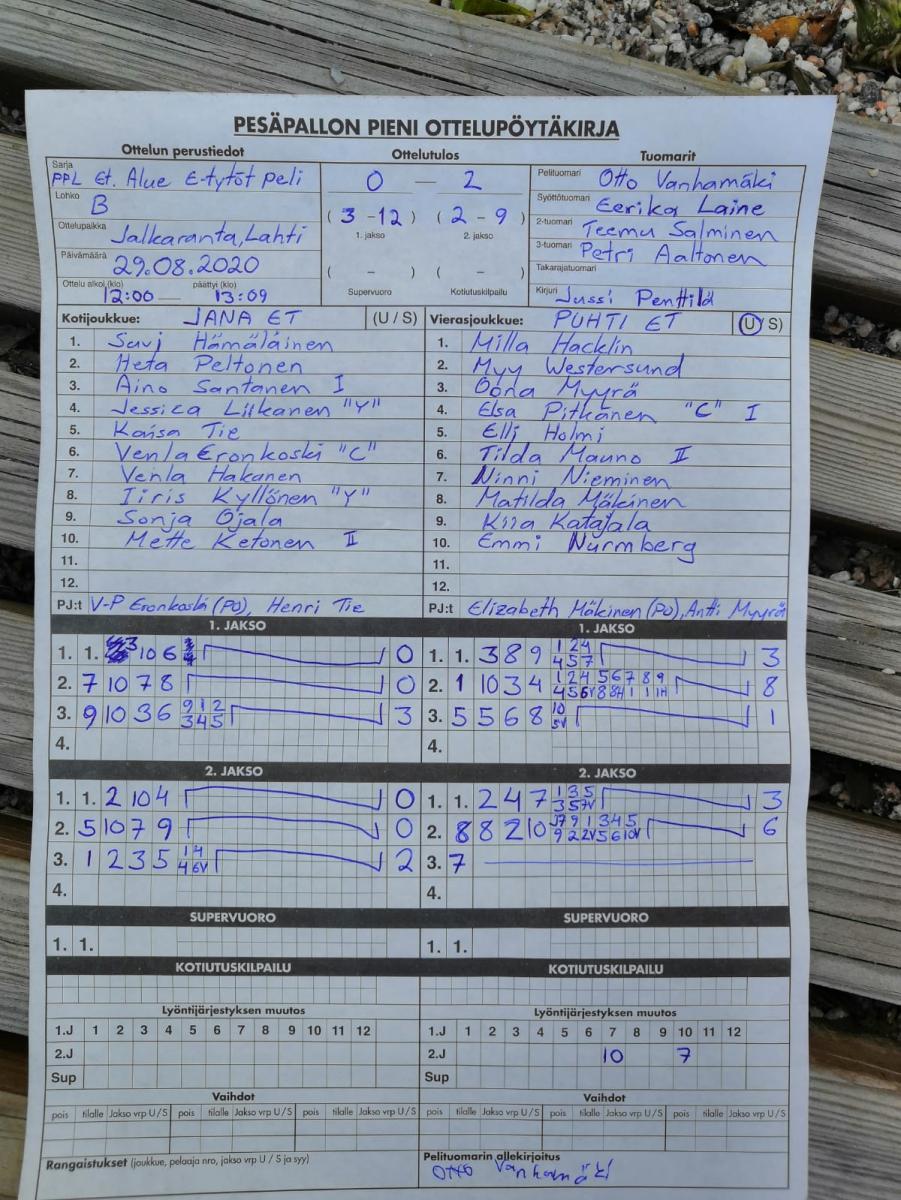 PESÄPALLON PIENI OTTELUPÖYTÄKIRJA
Ottelun perustiedot Ottelutulos Tuomarit
Sarja PPL Et. Alue E-tytöt peli
Lohko B
Ottelupaikka Jalkaranta, Lahti
Päivämäärä 29.08.2020
Ottelu alkoi (klo) 12:00 — päättyi (klo) 13:09
0 — 2
(3 - 12) (2 - 9)
1. jakso 2. jakso
( - ) ( - )
Supervuoro Kotiutuskilpailu
Pelituomari Otto Vanhamäki
Syöttötuomari Eerika Laine
2-tuomari Teemu Salminen
3-tuomari Petri Aaltonen
Takarajatuomari
Kirjuri Jussi Penttilä
Kotijoukkue: JANA ET (U / S)
1. Suvi Hämäläinen
2. Heta Peltonen
3. Aino Santanen I
4. Jessica Liikanen "Y"
5. Kaisa Tie
6. Venla Eronkoski "C"
7. Venla Hakanen
8. Iiris Kyllönen "Y"
9. Sonja Ojala
10. Mette Ketonen II
11.
12.
PJ:t V-P Eronkoski (PU), Henri Tie
Vierasjoukkue: PUHTI ET (U / S)
1. Milla Hacklin
2. Myy Westersund
3. Oona Myyrä
4. Elsa Pitkänen "C" I
5. Elli Holmi
6. Tilda Mauno II
7. Ninni Nieminen
8. Matilda Mäkinen
9. Kiia Katajala
10. Emmi Nurmberg
11.
12.
PJ:t Elizabeth Mäkinen (PU), Antti Myyrä
1. JAKSO
1. 1. 3 10 6 0
2. 7 10 7 8 0
3. 9 10 3 6 9 1 2 3
3 4 5
4.
1. JAKSO
1. 1. 3 8 9 1 2 4 3
4 5 7
2. 1 10 3 4 1 2 4 5 6 7 8 9 8
3. 5 5 6 8 10 1
5V
4.
2. JAKSO
1. 1. 2 10 4 0
2. 5 10 7 9 0
3. 1 2 3 5 1 4 2
4 6V
4.
2. JAKSO
1. 1. 2 4 7 1 3 5 3
3 5 7V
2. 8 8 2 10 9 1 3 4 5 6
9 2 2V 5 6 10V
3. 7
4.
SUPERVUORO
1. 1.
SUPERVUORO
1. 1.
KOTIUTUSKILPAILU
KOTIUTUSKILPAILU
Lyöntijärjestyksen muutos
1.J 1 2 3 4 5 6 7 8 9 10 11 12
2.J
Sup
Lyöntijärjestyksen muutos
1.J 1 2 3 4 5 6 7 8 9 10 11 12
2.J 10 7
Sup
Vaihdot
pois tilalle Jakso vrp U / S pois tilalle Jakso vrp U / S pois tilalle Jakso vrp U / S
Vaihdot
pois tilalle Jakso vrp U / S pois tilalle Jakso vrp U / S pois tilalle Jakso vrp U / S
Rangaistukset (joukkue, pelaaja nro, jakso vrp U / S ja syy)
Pelituomarin allekirjoitus
Otto Vanhamäki